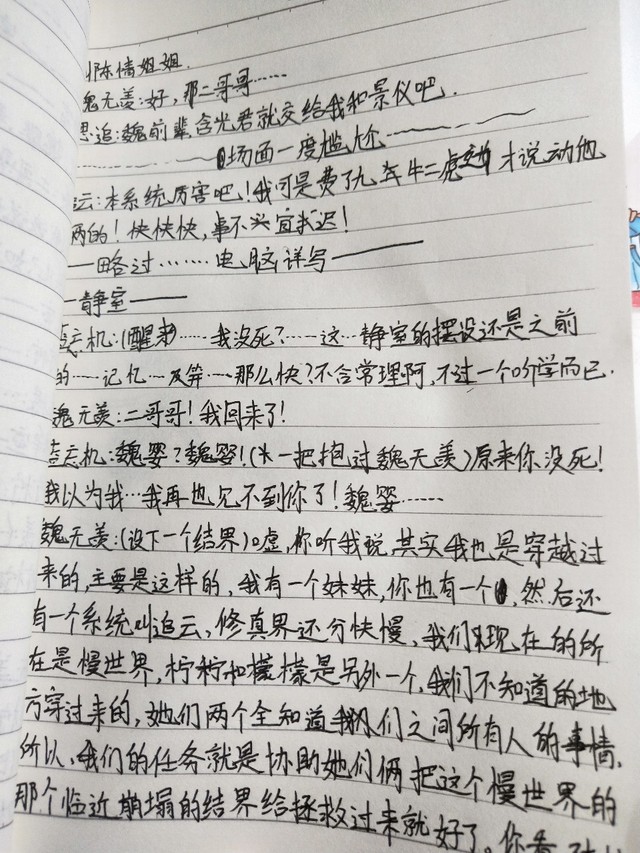 陈情姐姐.
魏无羡:好,那二哥哥……
思追:魏前辈,含光君就交给我和景仪吧.
场面一度尴尬
云:本系统厉害吧!我可是费了九牛二虎才说动他
俩的!快快快,事不宜迟!
——略过……电脑详写——
—静室——
蓝忘机:(醒来)……我没死?……这…静室的摆设还是之前
的……记忆……及笄……那么快?不合常理啊,不过一个听学而已.
魏无羡:二哥哥!我回来了!
蓝忘机:魏婴?魏婴!(*一把抱过魏无羡)原来你没死!
我以为我…我再也见不到你了!魏婴……
魏无羡:(设下一个结界)嘘,你听我说,其实我也是穿越过
来的,主要是这样的,我有一个妹妹,你也有一个,然后还
有一个系统叫追云,修真界还分快慢,我们现在的所
在是慢世界,柠柠和檬檬是另外一个,我们不知道的地
方穿过来的,她们两个全知道我们之间所有人的事情,
所以,我们的任务就是协助她们俩把这个慢世界的
那个临近崩塌的结界给拯救过来就好了。你看